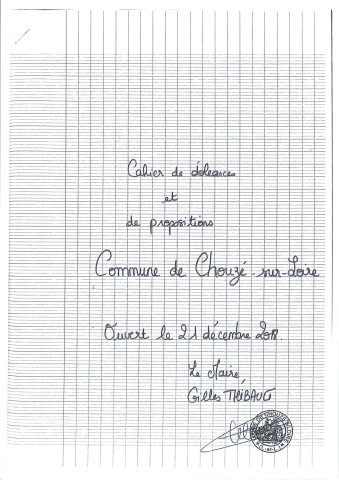 Cahier de doléances
et
de propositions
Commune de Chouzé-sur-Loire
Ouvert le 21 décembre 2018.
Le Maire,
Gilles THIBAULT